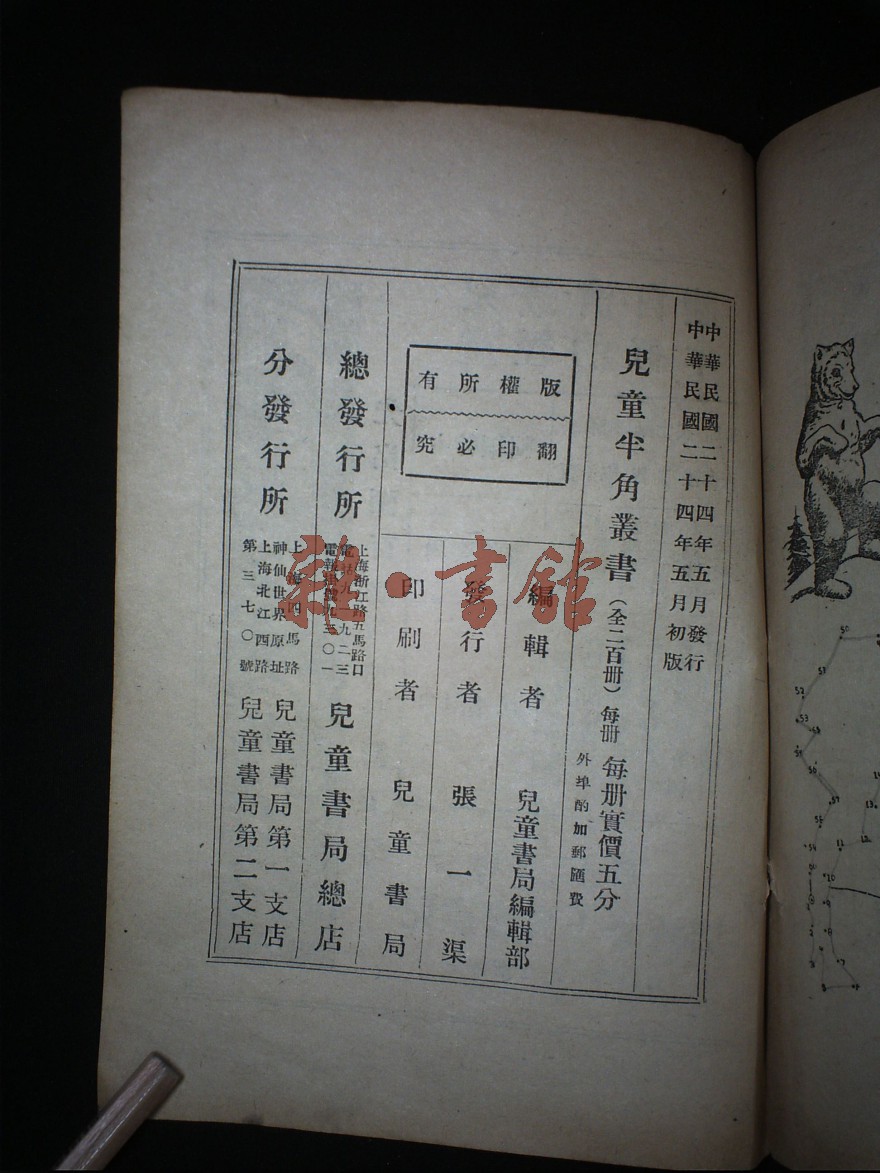 中華民國二十四年五月發行
中華民國二十四年五月初版
兒童半角叢書（全二百冊）每冊 每册實價五分
外埠酌加郵匯費
版權所有
翻印必究
編輯者 兒童書局編輯部
發行者 張一渠
印刷者 兒童書局
總發行所 上海浙江路五馬路口 兒童書局總店
分發行所
上海四馬路
神仙世界原址
兒童書局第一支店
上海北江西路
第三七〇號
兒童書局第二支店
雜·書館